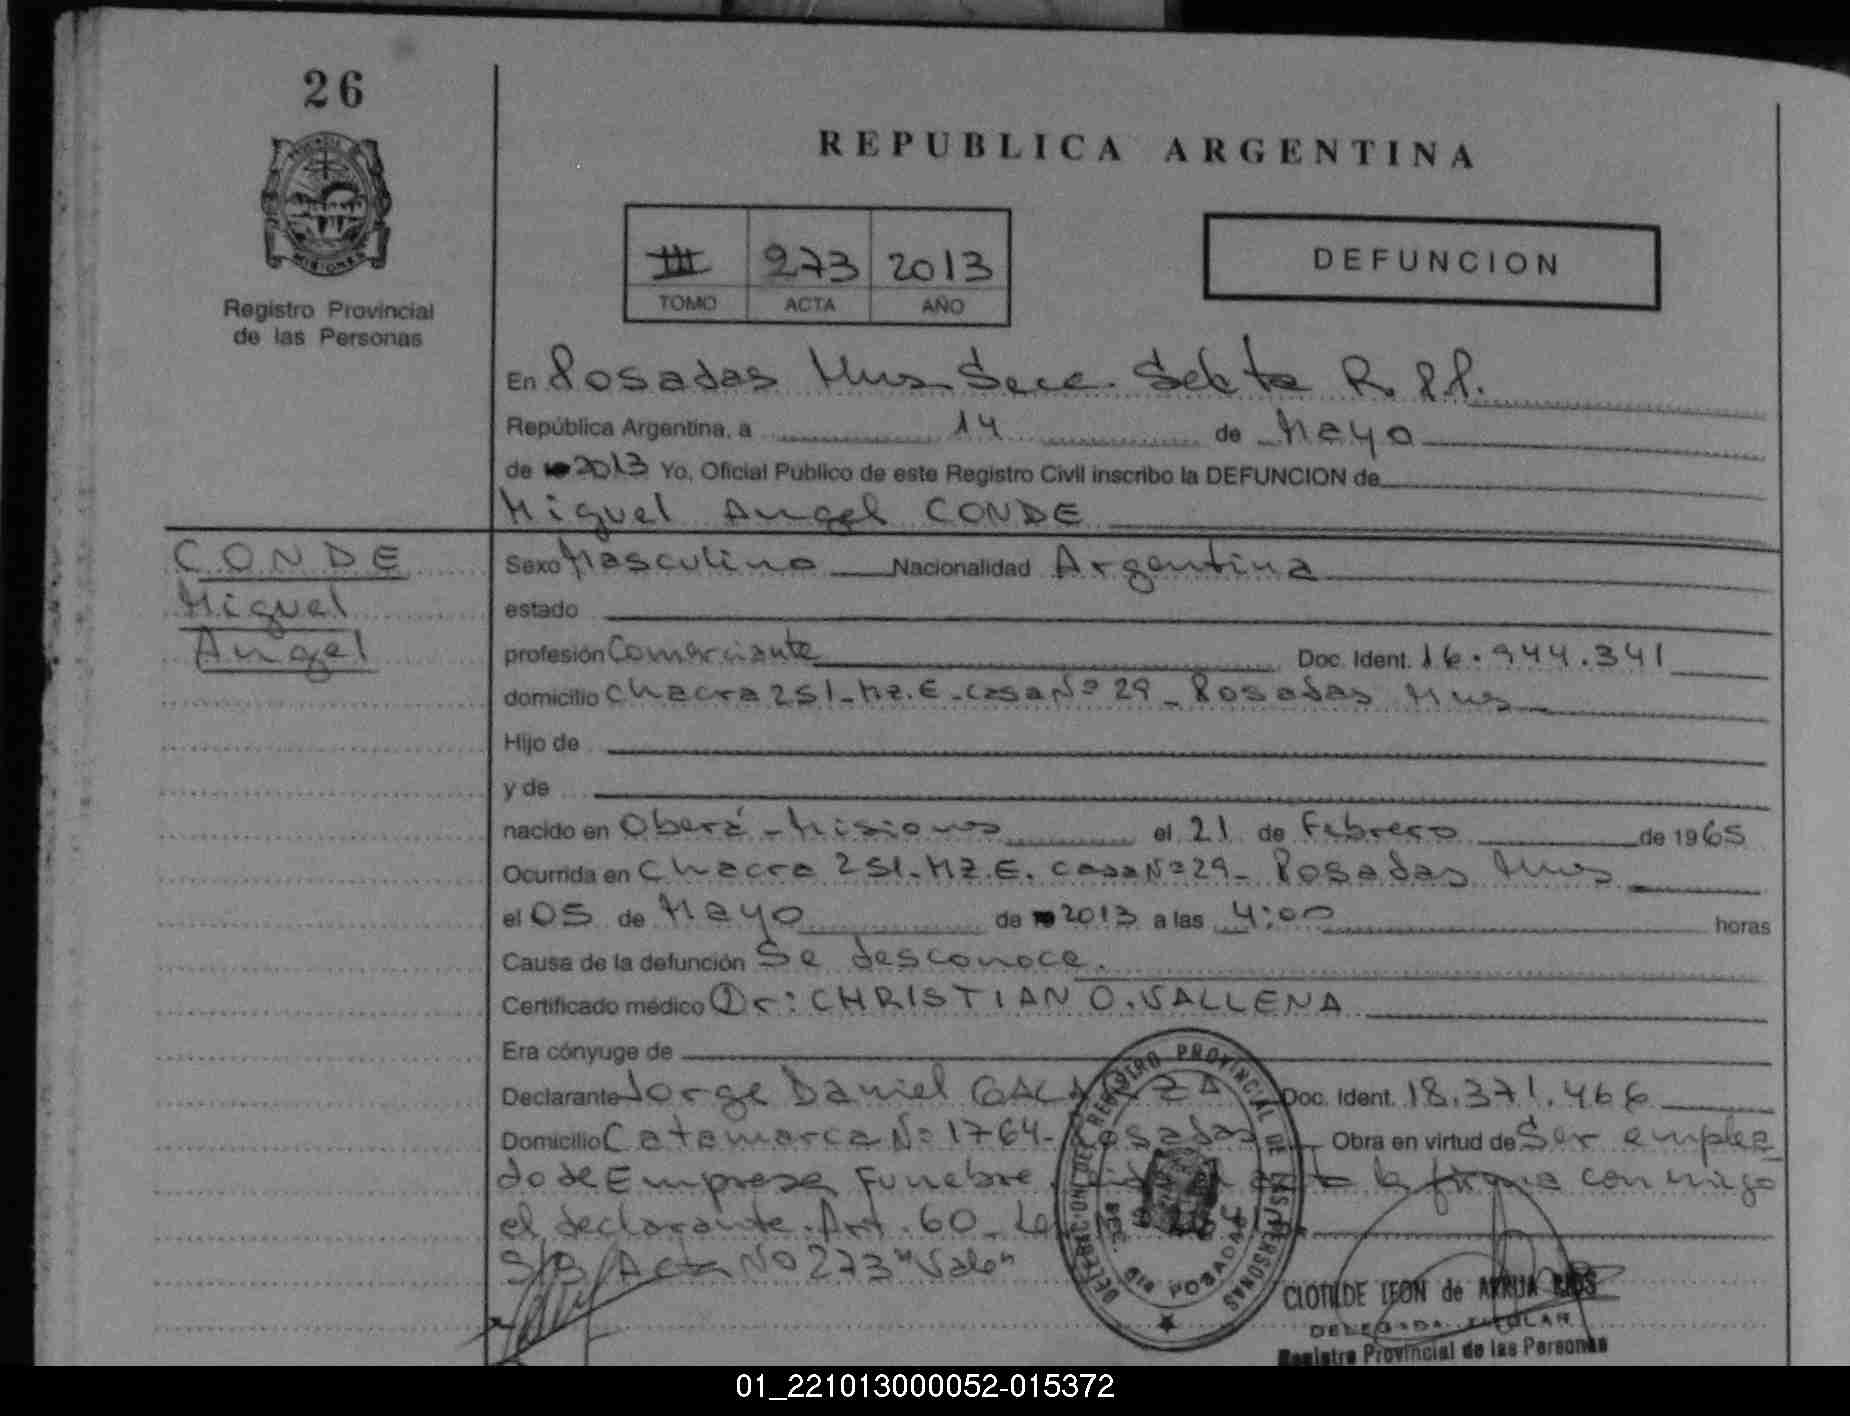 26
MISIONES
Registro Provincial
de las Personas
REPUBLICA ARGENTINA
III 273 2013
TOMO ACTA AÑO
DEFUNCION
En Posadas Mnes Secc. Sexta R.P.P.
República Argentina, a 14 de Mayo
de 2013 Yo, Oficial Público de este Registro Civil inscribo la DEFUNCION de
Miguel Angel CONDE
CONDE
Miguel
Angel
Sexo Masculino Nacionalidad Argentina
estado
profesión Comerciante Doc. Ident. 16.944.341
domicilio Chacra 251-Mz.E-casa Nº 29 - Posadas Mnes
Hijo de
y de
nacido en Oberá - Misiones el 21 de Febrero de 1965
Ocurrida en Chacra 251-MZ.E. casa Nº 29 - Posadas Mnes
el 05 de Mayo de 2013 a las 4:00 horas
Causa de la defunción Se desconoce.
Certificado médico Dr: CHRISTIAN O. VALLENA
Era cónyuge de
Declarante Jorge Daniel Doc. Ident. 18.371.466
Domicilio Catamarca Nº 1764- Posadas Obra en virtud de Ser emplea
do de Empresa Funebre. Leida el acta la firma con migo
el declarante. Art. 60_
S/B Acta Nº 273 "Vale"
DELEGACION DEL REGISTRO PROVINCIAL DE LAS PERSONAS
POSADAS
CLOTILDE LEON de ARRUA RIOS
DELEGADA TITULAR
Registro Provincial de las Personas
01_221013000052-015372